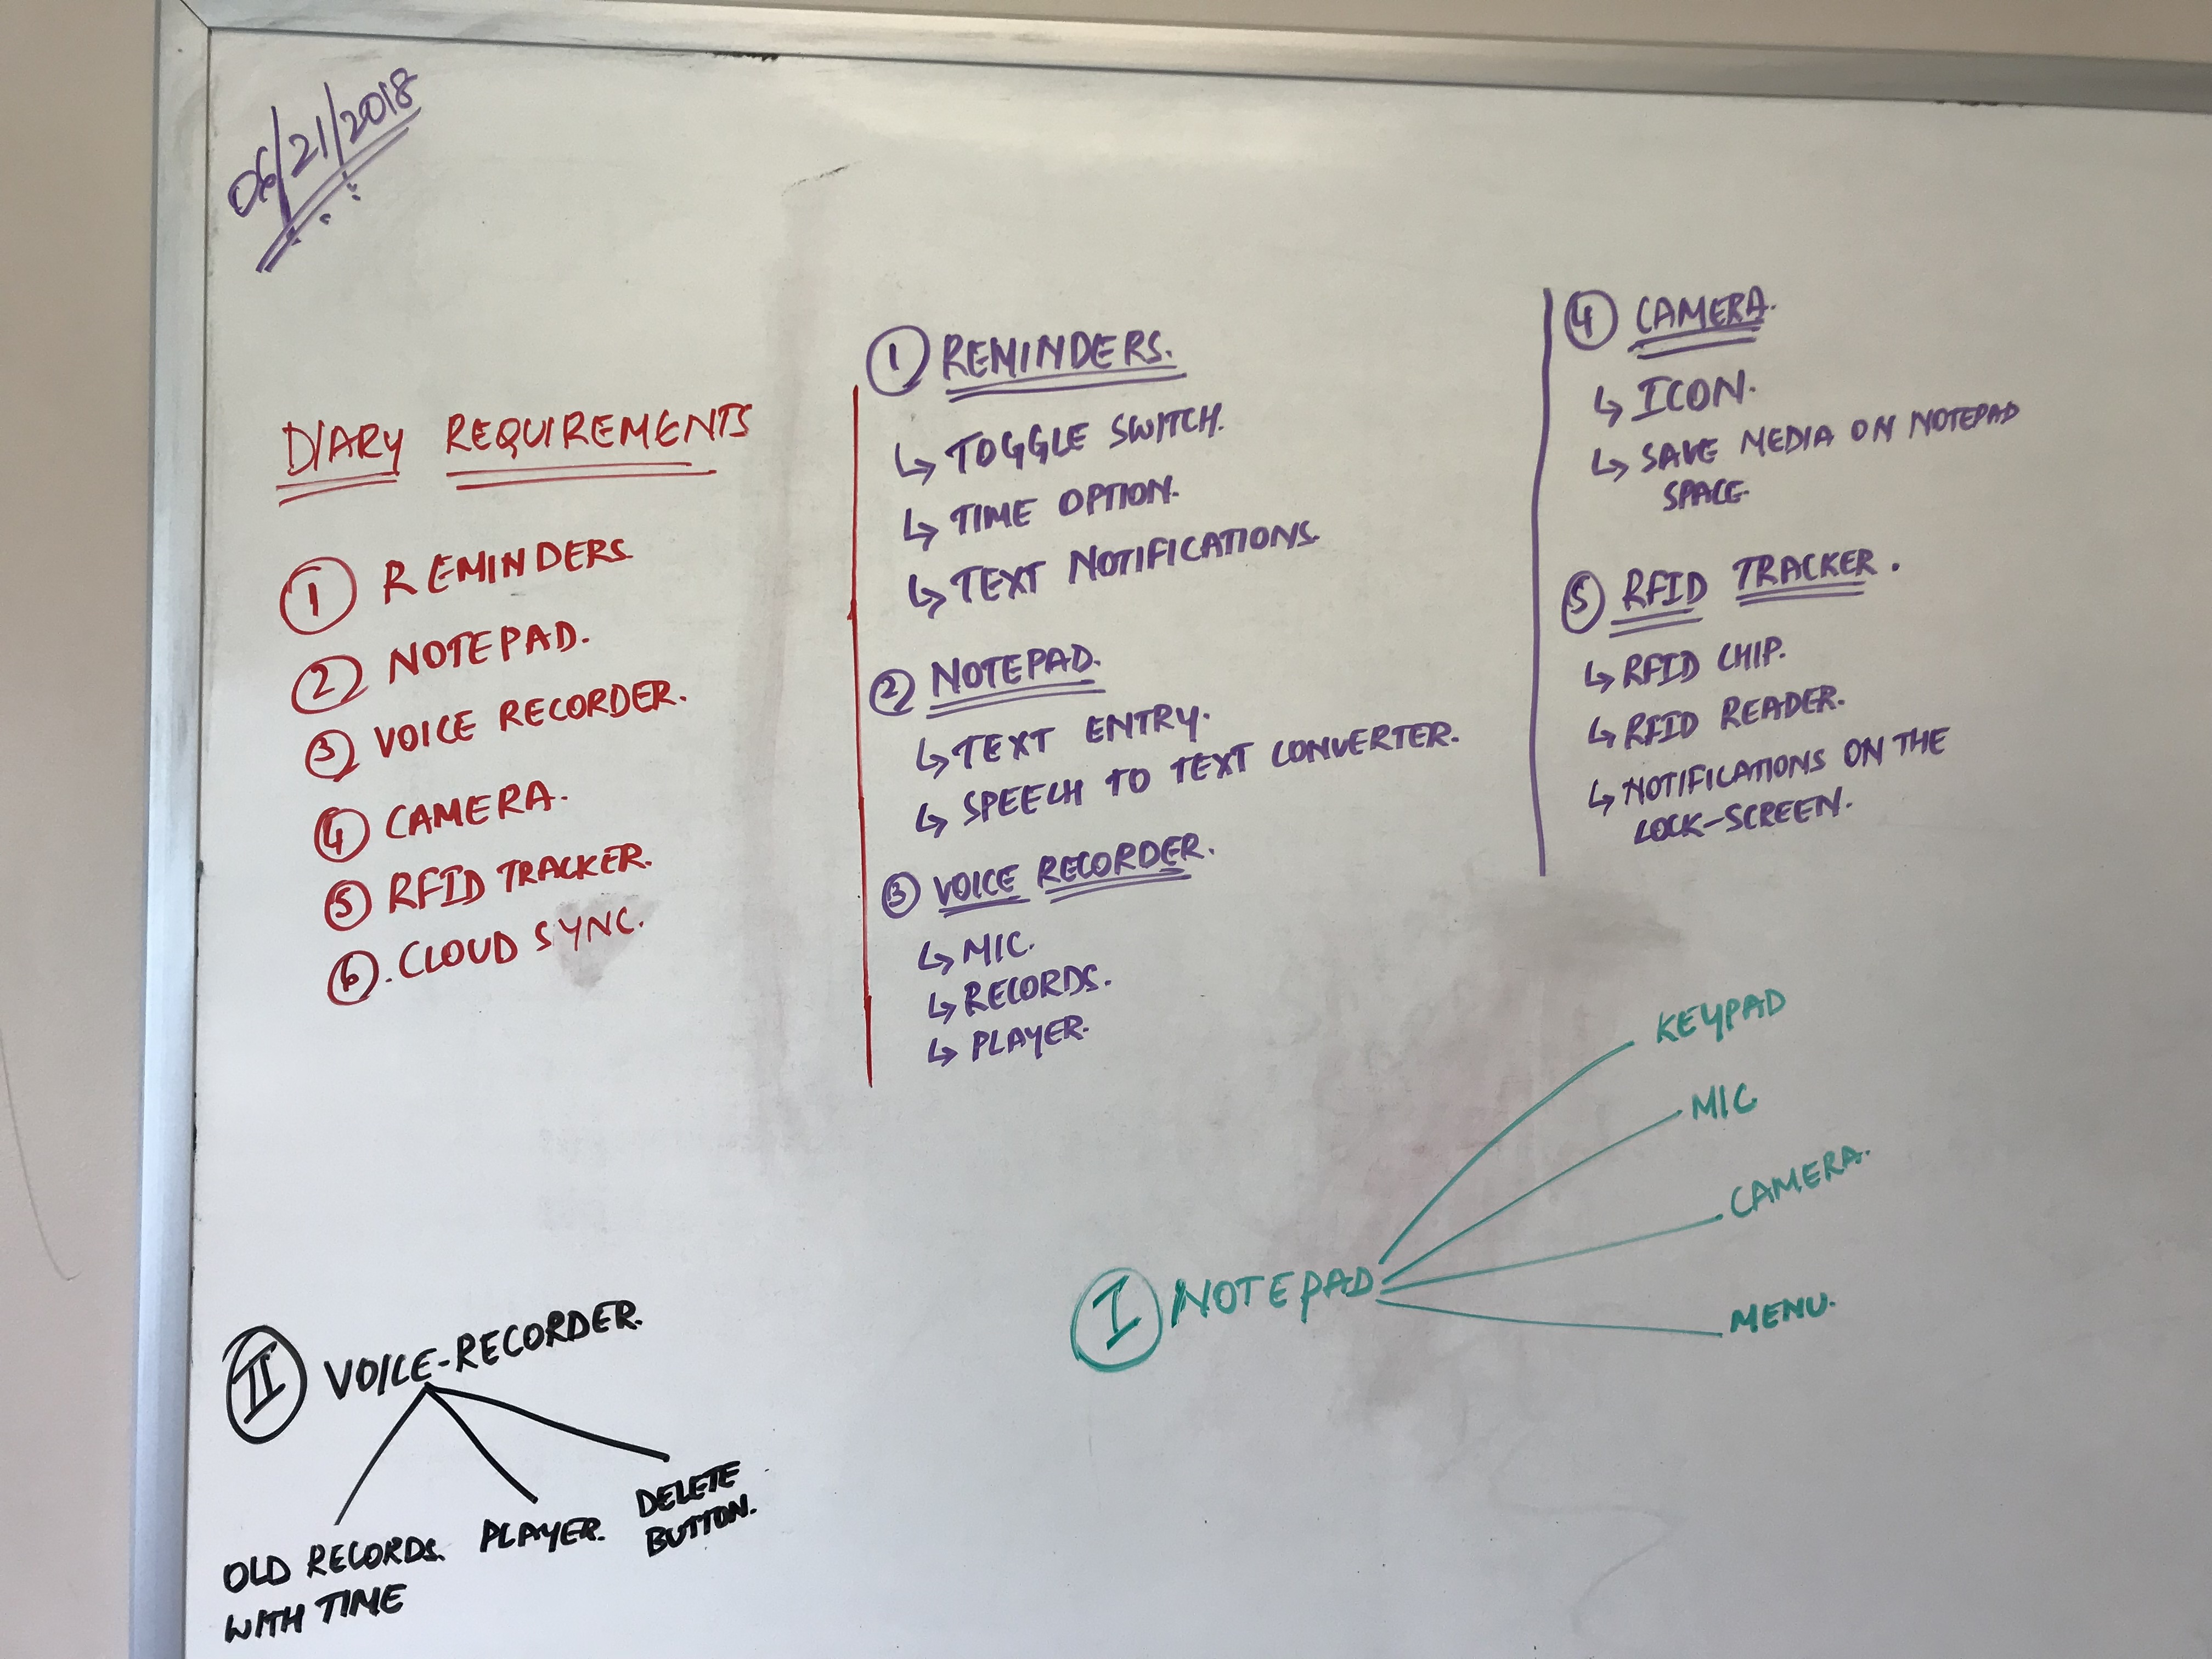 06/21/2018
DIARY REQUIREMENTS
1 REMINDERS
2 NOTEPAD.
3 VOICE RECORDER.
4 CAMERA.
5 RFID TRACKER.
6. CLOUD SYNC.
1 REMINDERS.
↳ TOGGLE SWITCH.
↳ TIME OPTION.
↳ TEXT NOTIFICATIONS.
2 NOTEPAD.
↳ TEXT ENTRY.
↳ SPEECH TO TEXT CONVERTER.
3 VOICE RECORDER.
↳ MIC.
↳ RECORDS.
↳ PLAYER.
4 CAMERA.
↳ ICON.
↳ SAVE MEDIA ON NOTEPAD
SPACE.
5 RFID TRACKER.
↳ RFID CHIP.
↳ RFID READER.
↳ NOTIFICATIONS ON THE
LOCK-SCREEN.
I NOTEPAD
KEYPAD
MIC
CAMERA.
MENU.
II VOICE-RECORDER.
OLD RECORDS.
WITH TIME
PLAYER.
DELETE
BUTTON.